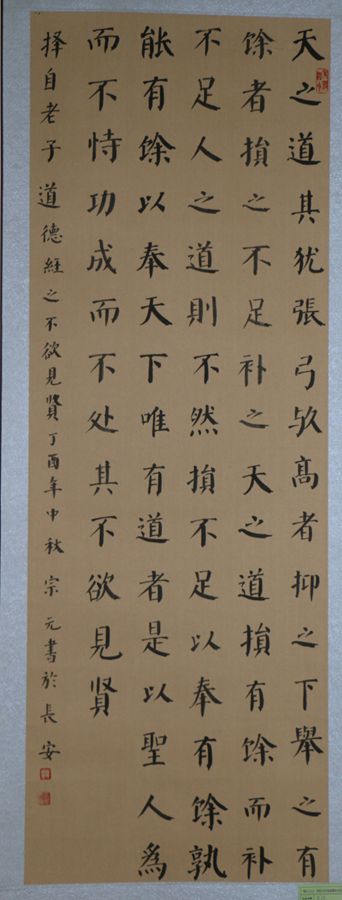 天之道其犹張弓欤高者抑之下舉之有
餘者損之不足补之天之道損有餘而补
不足人之道則不然損不足以奉有餘孰
能有餘以奉天下唯有道者是以聖人為
而不恃功成而不处其不欲見贤
择自老子道德經之不欲見贤丁酉年中秋宗元書於長安